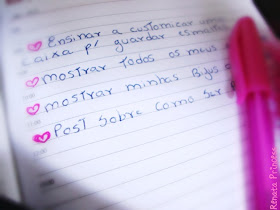 Ensinar a customizar uma
caixa p/ guardar esmaltes
mostrar todos os meus
mostrar minhas Bijus
Post sobre como ser
Renata Princess